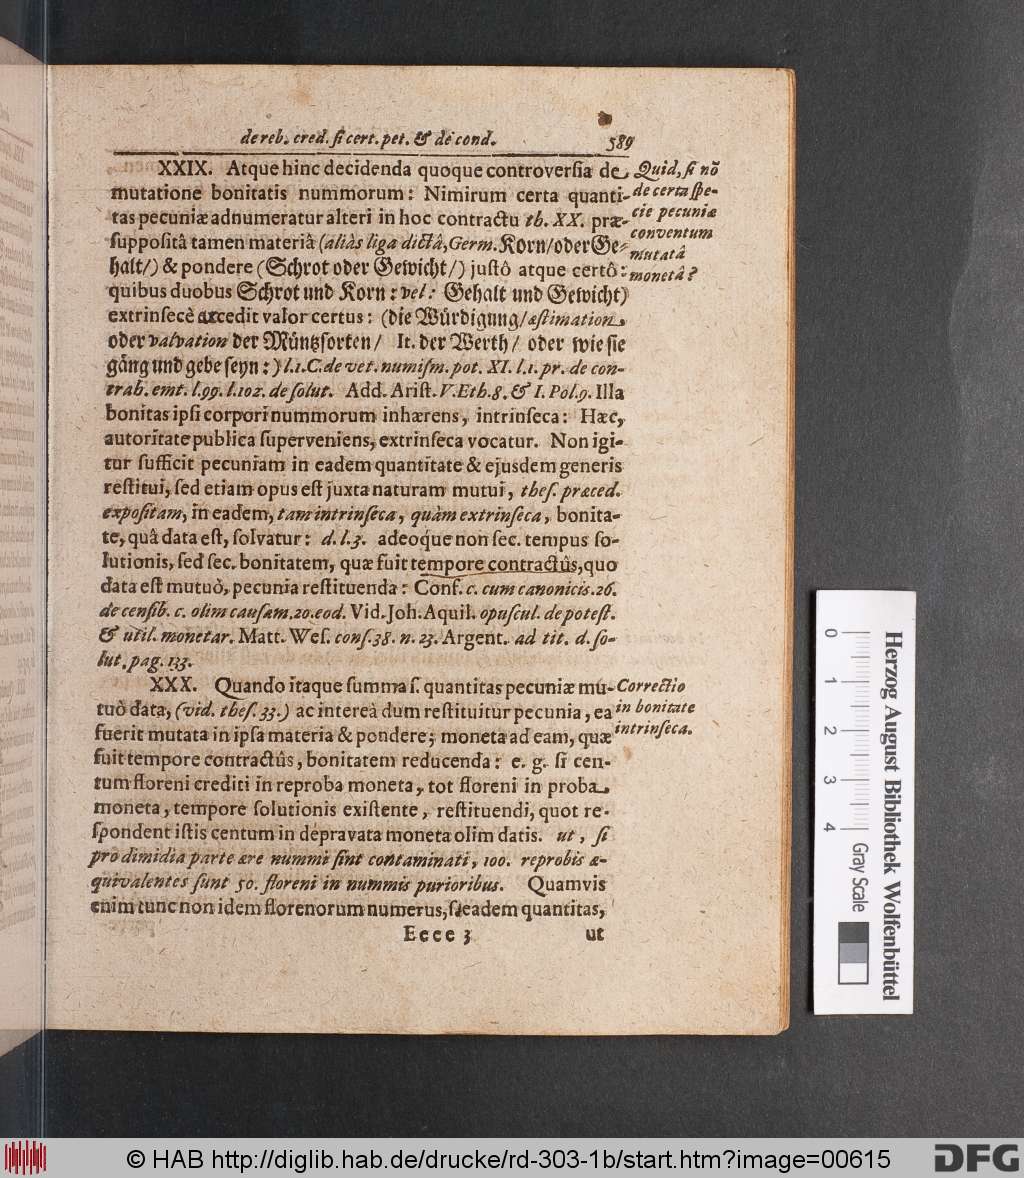 de reb. cred. ſi cert. pet. & de cond. 589
XXIX. Atque hinc decidenda quoque controverſia de
mutatione bonitatis nummorum: Nimirum certa quanti-
tas pecuniæ adnumeratur alteri in hoc contractu th. XX. præ-
ſuppoſitâ tamen materiâ (aliàs liga dictâ, Germ. Korn/ oder Ge-
halt/) & pondere (Schrot oder Gewicht/) juſtô atque certô:
quibus duobus Schrot und Korn: vel: Gehalt und Gewicht)
extrinſecè accedit valor certus: (die Würdigung/ æſtimation
oder valvation der Müntzſorten/ It. der Werth/ oder wie ſie
gäng und gebe ſeyn:) l.1. C. de vet. numiſm. pot. XI. l.1. pr. de con-
trah. emt. l.99. l.102. de ſolut. Add. Ariſt. V. Eth. 8. & I. Pol. 9. Illa
bonitas ipſi corpori nummorum inhærens, intrinſeca: Hæc,
autoritate publica ſuperveniens, extrinſeca vocatur. Non igi-
tur ſufficit pecuniam in eadem quantitate & ejusdem generis
reſtitui, ſed etiam opus eſt juxta naturam mutui, theſ. præced.
expoſitam, in eadem, tam intrinſeca, quàm extrinſeca, bonita-
te, quâ data eſt, ſolvatur: d. l. 3. adeoq́ue non ſec. tempus ſo-
lutionis, ſed ſec. bonitatem, quæ fuit tempore contractûs, quo
data eſt mutuò, pecunia reſtituenda: Conf. c. cum canonicis. 26.
de cenſib. c. olim cauſam. 20. eod. Vid. Joh. Aquil. opuſcul. de poteſt.
& util. monetar. Matt. Weſ. conſ. 38. n. 23. Argent. ad tit. d. ſo-
lut. pag. 133.
Quid, ſi nō
de certa ſpe-
cie pecuniæ
conventum
mutatâ
monetâ?
XXX. Quando itaque ſumma ſ. quantitas pecuniæ mu-
tuò data, (vid. theſ. 33.) ac intereà dum reſtituitur pecunia, ea
fuerit mutata in ipſa materia & pondere; moneta ad eam, quæ
fuit tempore contractûs, bonitatem reducenda: e. g. ſi cen-
tum floreni crediti in reproba moneta, tot floreni in proba
moneta, tempore ſolutionis exiſtente, reſtituendi, quot re-
ſpondent iſtis centum in depravata moneta olim datis. ut, ſi
pro dimidia parte ære nummi ſint contaminati, 100. reprobis æ-
quivalentes ſunt 50. floreni in nummis purioribus. Quamvis
enim tunc non idem florenorum numerus, ſ. eadem quantitas,
Correctio
in bonitate
intrinſeca.
Eeee 3 ut
Herzog August Bibliothek Wolfenbüttel
0 1 2 3 4 Gray Scale
© HAB http://diglib.hab.de/drucke/rd-303-1b/start.htm?image=00615
DFG